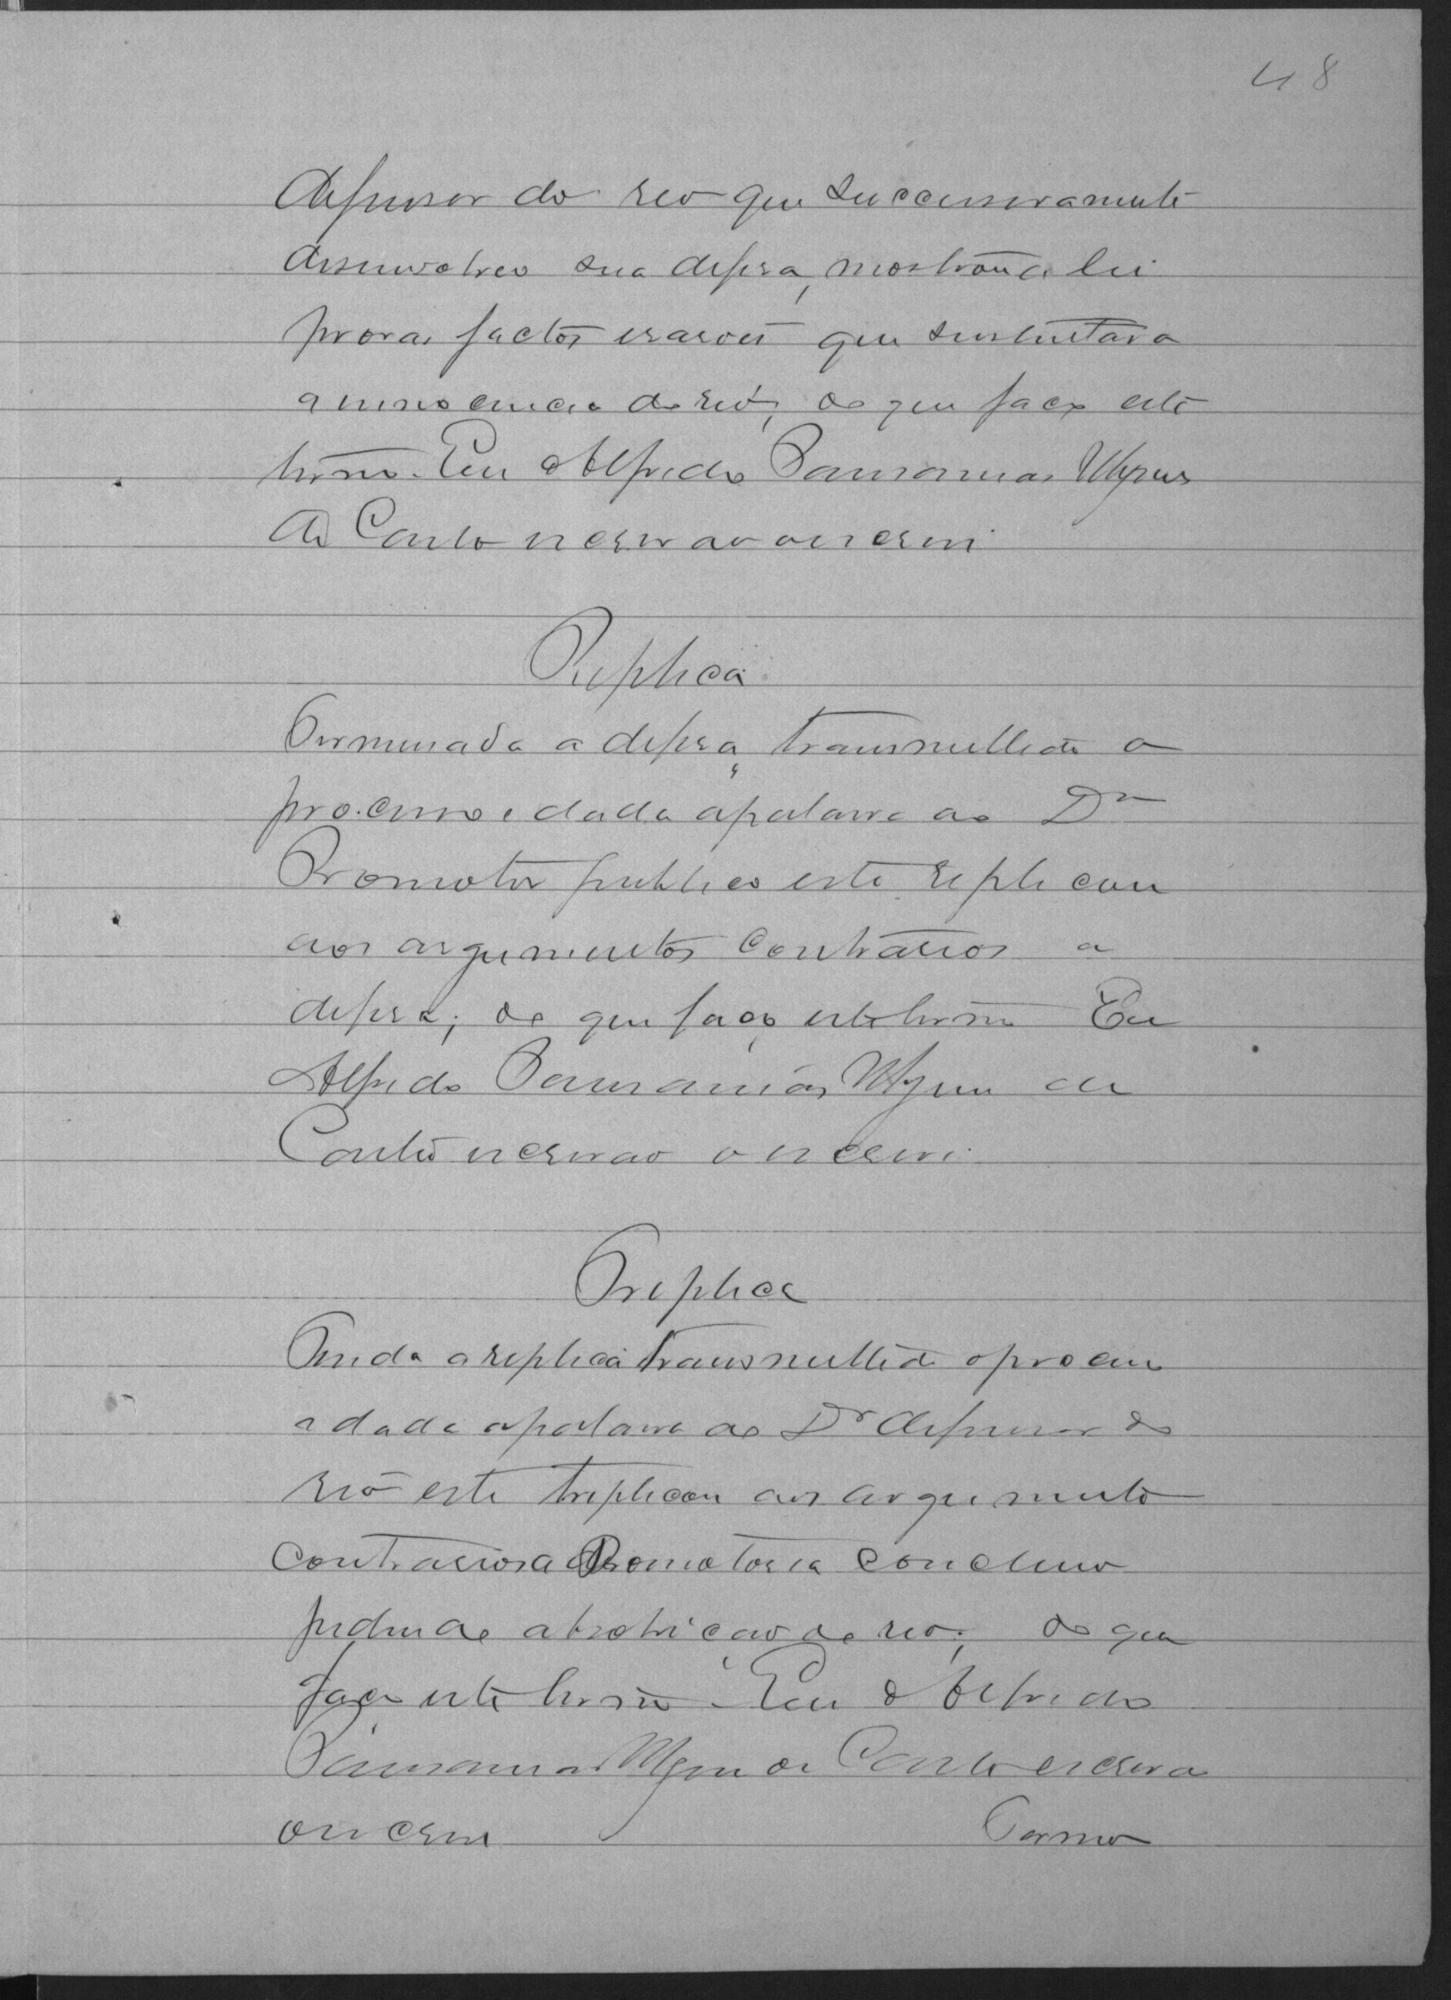 48
defensor do reo que successivamente
desenvolveo sua defesa, mostrando a lei
provas factos e rasões que sustentava
a innocencia do reo; do que faço este
termo. Eu Alfredo Pausanias
de Couto escrivão o escrevi
Replica
Terminada a defesa, transmittido o
processo e dada a palavra ao Dr
Promotor publico este replicou
aos argumentos contrarios a
defesa; do que faço este termo Eu
Alfredo Pausanias de
Couto escrivão o escrevi.
Treplica
Finda a replica transmittido o processo
e dada a palavra ao Dr defensor do
reo este treplicou aos argumento
contrarios a Promotoria concluio
pedindo absolvição do reo; do que
faço este termo. Eu Alfredo
Pausanias de Couto escrivão
o escrevi Termo